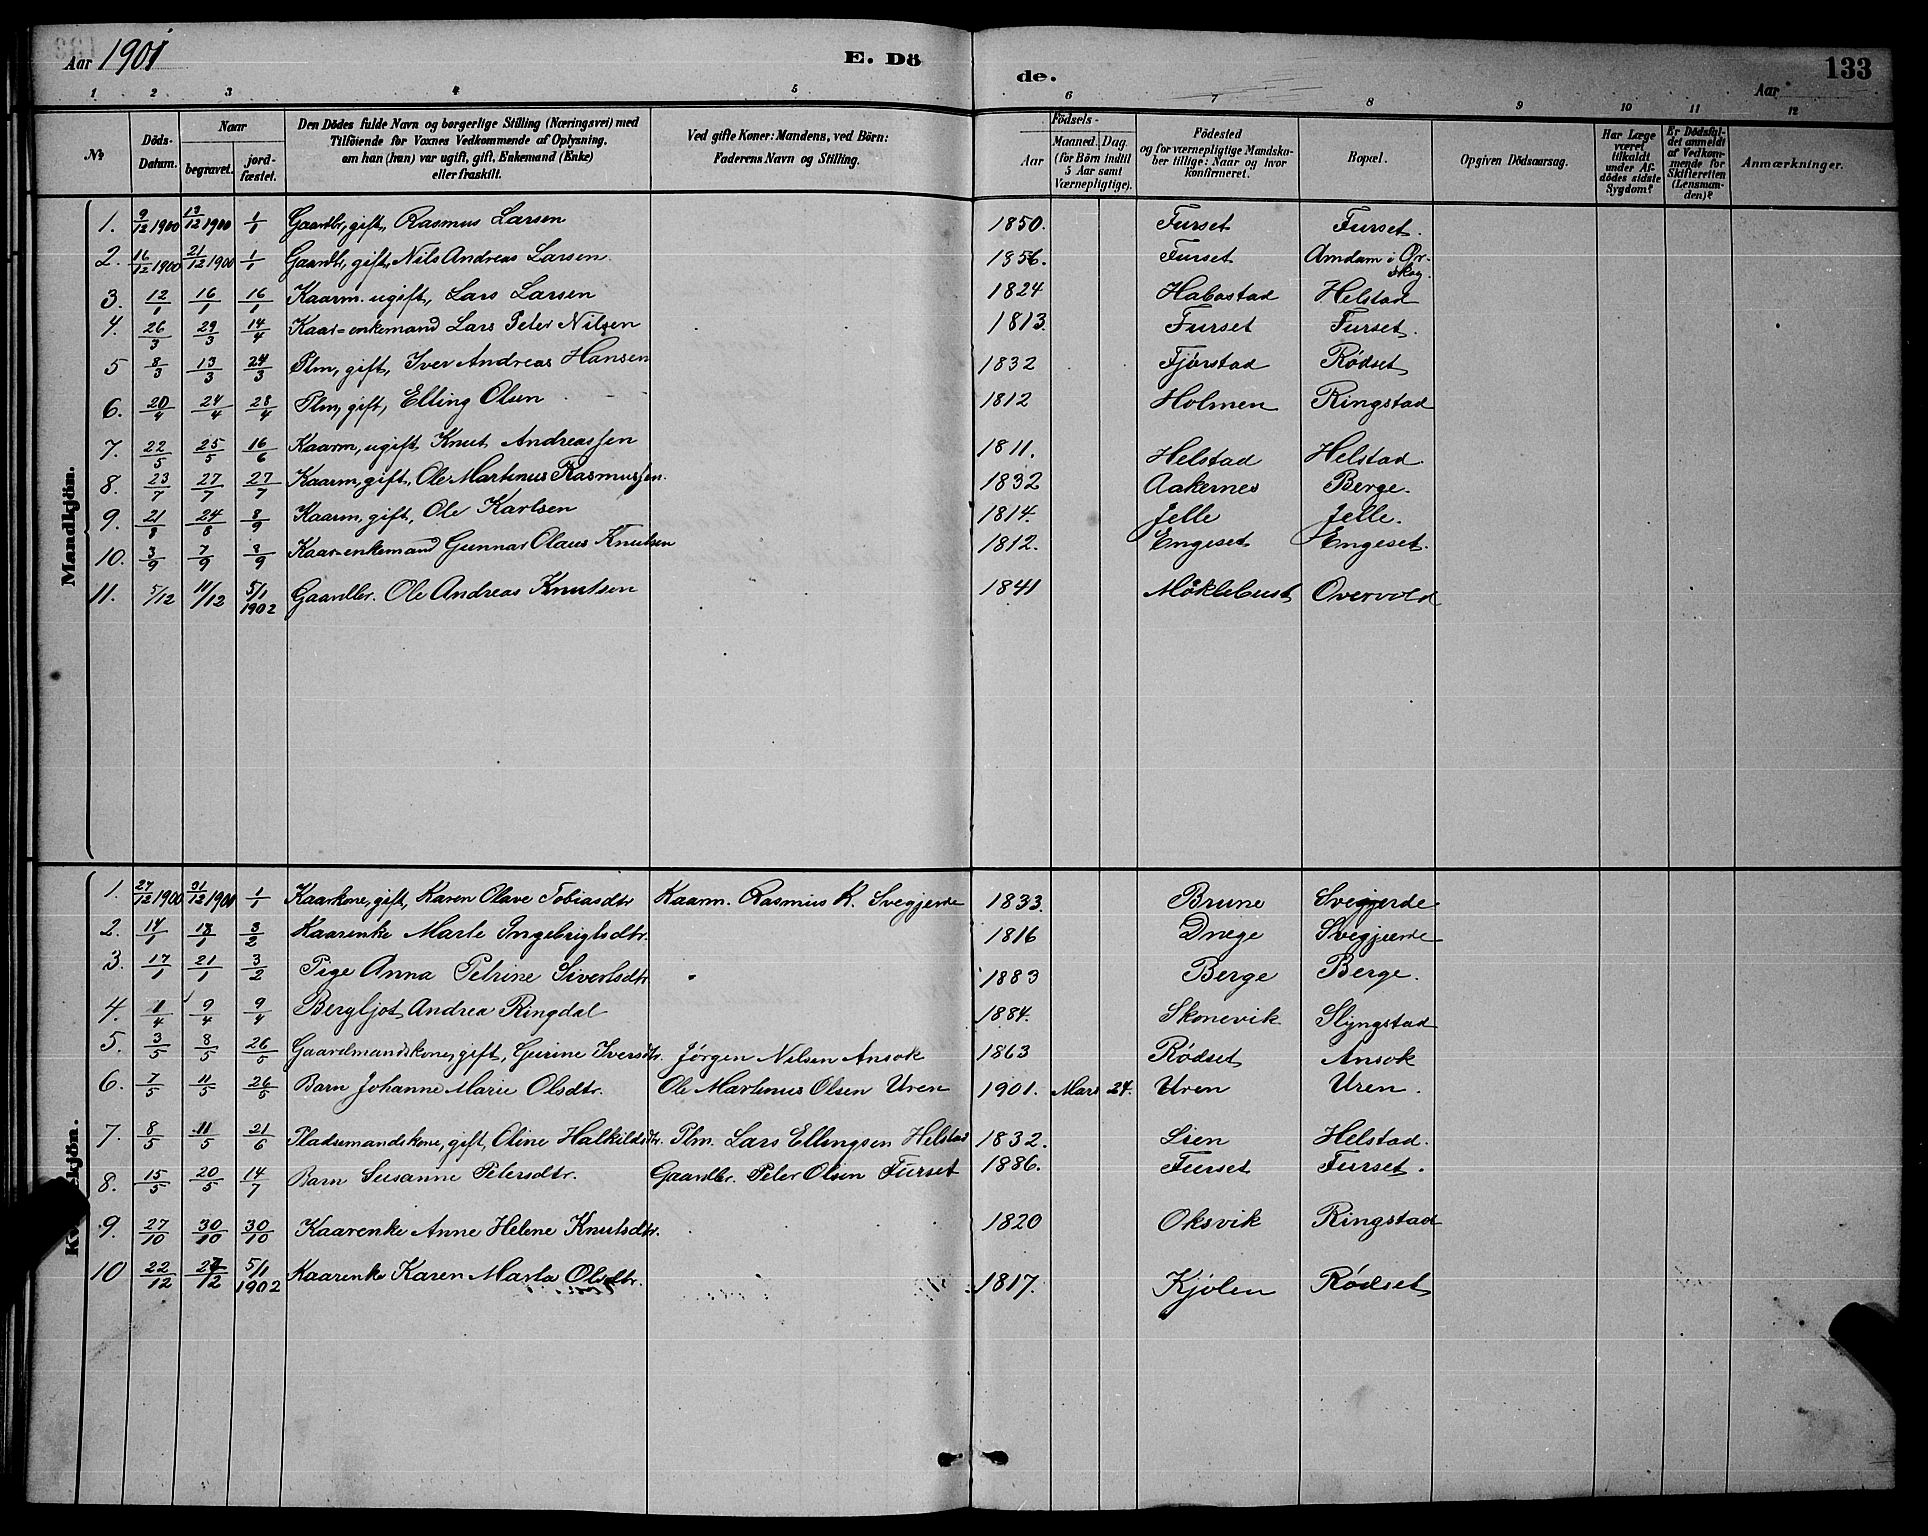 Aar 1901
E. Dö
de.
133
Aar
1 2 3 4 5 6 7 8 9 10 11 12
№
Döds-Datum.
Naar
begravet.
jord-fæstet.
Den Dödes fulde Navn og borgerlige Stilling (Næringsvei) med
Tilföiende for Voxnes Vedkommende af Oplysning,
om han (hun) var ugift, gift, Enkemand (Enke)
eller fraskilt.
Ved gifte Koner: Mandens, ved Börn:
Faderens Navn og Stilling.
Födsels-
Aar
Maaned. Dag.
(for Börn indtil
5 Aar samt
Værnepligtige).
Födested
og for værnepligtige Mandska-
ber tillige: Naar og hvor
konfirmeret.
Bopæl.
Opgiven Dödsaarsag.
Har Læge
været
tilkaldt
under Af-
dödes sidste
Sygdom?
Er Dödsfal-
det anmeldt
af Vedkom-
mende for
Skifteretten
(Lensman-
den)?
Anmærkninger.
Mandkjön.
1. 9/12 1900 13/12 1900 1/1 Gaardbr, gift, Rasmus Larsen 1850. Furset Furset.
2. 16/12 1900 21/12 1900 1/1 Gaardbr, gift, Nils Andreas Larsen 1856. Furset Amdam i Ør-
skog.
3. 12/1 16/1 16/1 Kaarm. ugift, Lars Larsen 1824 Habostad Helstad
4. 26/3 29/3 14/4 Kaar-enkemand Lars Peter Nilsen 1813. Furset Furset.
5 8/3 13/3 24/3 Plm, gift, Iver Andreas Hansen 1832 Fjørstad Rödset
6. 20/4 24/4 28/4 Plm, gift, Elling Olsen 1812 Holmen Ringstad
7. 22/5 25/5 16/6 Kaarm, ugift Knut Andreassen 1811. Helstad Helstad.
8. 23/7 27/7 27/7 Kaarm, gift, Ole Martinus Rasmussen. 1832 Aakernes Berge.
9. 21/8 24/8 8/9 Kaarm, gift, Ole Karlsen 1814. Jelle Jelle.
10. 3/9 7/9 8/9 Kaar-enkemand Gunnar Olaus Knutsen 1812. Engeset Engeset.
11. 5/12 11/12 5/1 1902 Gaardbr. Ole Andreas Knutsen 1841 Möklebust Overvold
1. 27/12 1900 31/12 1900 1/1 Kaarkone, gift, Karen Olave Tobiasdtr Kaarm. Rasmus K. Svegjerde 1833. Brune Svegjerde
2. 14/1 18/1 3/2 Kaarenke Marte Ingebrigtsdtr. 1816 Dnege Svegjerde
3. 17/1 21/1 3/2 Pige Anna Petrine Sivertsdtr 1883 Berge Berge.
4. 1/4 9/4 9/4 Bergljot Andrea Ringdal 1884. Skonevik Slyngstad
5. 3/5 8/5 26/5 Gaardmandskone, gift, Gurine Iversdtr. Jörgen Nilsen Ansok 1863 Rödset Ansok
6. 7/5 11/5 26/5 Barn Johanne Marie Olsdtr. Ole Martinus Olsen Uren 1901. Mars 24. Uren Uren.
7. 8/5 11/5 21/6 Pladsemandskone, gift, Oline Halkildsdtr. Plm. Lars Ellingsen Helstad 1832. Lien Helstad.
8. 15/5 20/5 14/7 Barn Susanne Petersdtr. Gaardbr. Peter Olsen Furset 1886. Furset Furset.
9. 27/10 30/10 30/10 Kaarenke Anne Helene Knutsdtr. 1820 Oksvik Ringstad
10 22/12 27/12 5/1 1902 Kaarenke Karen Marta Olsdtr. 1817. Kjölen Rödset